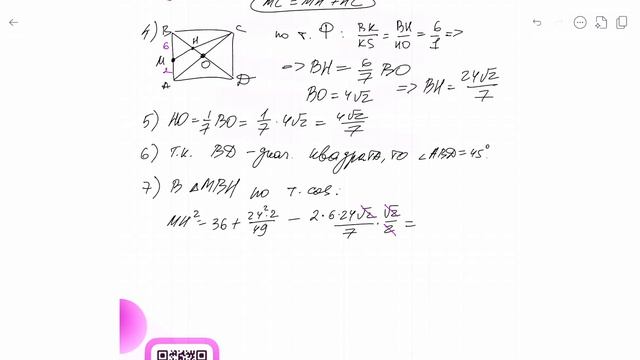 MC = MH + HC
4) B C 6 H M O 2 A D по т. Ф: BK/KS = BH/HO = 6/1 =>
=> BH = 6/7 BO
BO = 4√2 => BH = 24√2/7
5) HO = 1/7 BO = 1/7 · 4√2 = 4√2/7
6) т.к. BD - диаг. квадрата, то ∠ABD = 45°
7) В △MBH по т. cos:
MH² = 36 + 24²·2/49 - 2·6·24√2/7 · √2/2 =